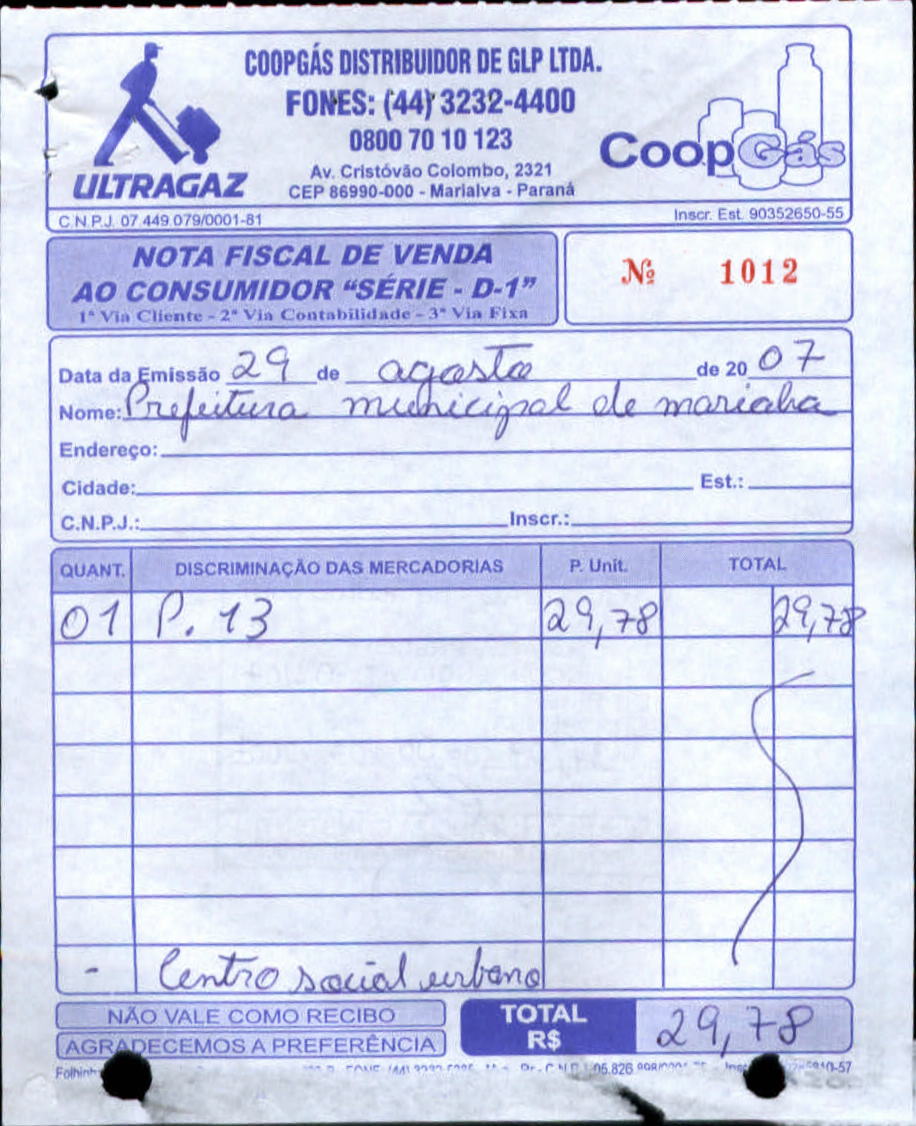 COOPGÁS DISTRIBUIDOR DE GLP LTDA.
FONES: (44) 3232-4400
0800 70 10 123
Av. Cristóvão Colombo, 2321
CEP 86990-000 - Marialva - Paraná
ULTRAGAZ
CoopGás
C.N.P.J. 07.449.079/0001-81
Inscr. Est. 90352650-55
NOTA FISCAL DE VENDA
AO CONSUMIDOR "SÉRIE - D-1"
1ª Via Cliente - 2ª Via Contabilidade - 3ª Via Fixa
Nº 1012
Data da Emissão 29 de agosto de 20 07
Nome: Prefeitura municipal de marialva
Endereço:
Cidade: Est.:
C.N.P.J.: Inscr.:
QUANT. DISCRIMINAÇÃO DAS MERCADORIAS P. Unit. TOTAL
01 P. 13 29,78 29,78
- Centro social urbano
NÃO VALE COMO RECIBO
AGRADECEMOS A PREFERÊNCIA
TOTAL R$ 29,78